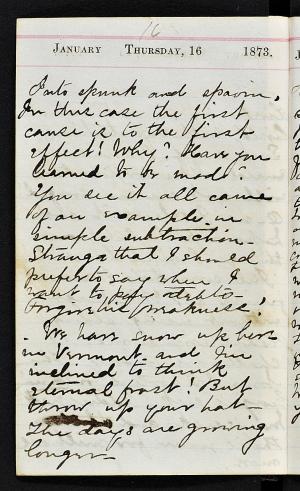 16
JANUARY THURSDAY, 16 1873.
Into spunk and spavin,
In this case the first
cause is to the first
effect! Why? Have you
learned to be mad?
You see it all came
of an example in
simple subtraction.
Strange that I should
prefer to say when I
want to pay debts—
Forgive his weakness!
- We have snow up here
in Vermont and I'm
inclined to think
eternal frost! But
throw up your hat—
The days are growing
longer—